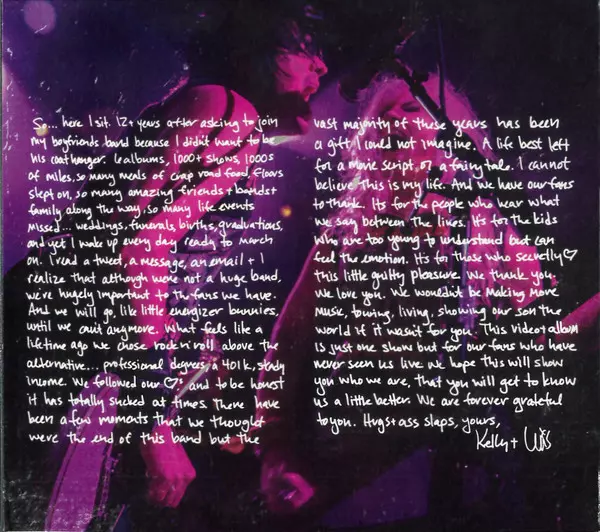 So... here I sit. 12+ years after asking to join
my boyfriends band because I didn't want to be
his coat hanger. 6 albums, 1000+ shows, 1000s
of miles, so many meals of crap road food, floors
slept on, so many amazing friends + bands +
family along the way, so many life events
missed... weddings, funerals, births, graduations,
and yet I wake up every day ready to march
on. I read a tweet, a message, an email + I
realize that although we're not a huge band,
we're hugely important to the fans we have.
And we will go, like little energizer bunnies,
until we can't anymore. What feels like a
lifetime ago we chose rock n roll above the
alternative... professional degrees, a 401k, steady
income. We followed our ♡'s and to be honest
it has totally sucked at times. There have
been a few moments that we thought
were the end of this band but the
vast majority of these years has been
a gift I could not imagine. A life best left
for a movie script or a fairy tale. I cannot
believe this is my life. And we have our fans
to thank. It's for the people who hear what
we say between the lines. It's for the kids
who are too young to understand but can
feel the emotion. It's for those who secretly ♡
this little guilty pleasure. We thank you.
We love you. We wouldn't be making more
music, touring, living, showing our son the
world if it wasn't for you. This video + album
is just one show but for our fans who have
never seen us live we hope this will show
you who we are, that you will get to know
us a little better. We are forever grateful
to you. Hugs + ass slaps, yours,
Kelly +